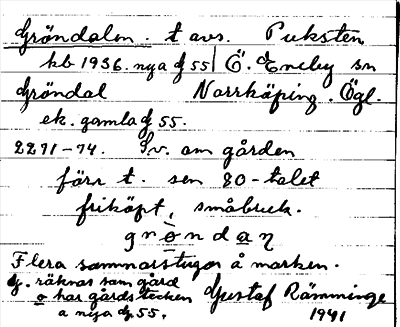 Gröndalen. t avs. Puksten
kb 1936. nya J 55 | Ö. Eneby sn
Gröndal Norrköping. Ögl.
ek. gamla J 55.
2271-74. Sv. om gården
förr t. sen 80-talet
friköpt, småbruk.
grøndaŋ
Flera sommarstugor å marken.
J. räknas som gård
o har gårdstecken Gustaf Rämminge
a nya J 55. 1941